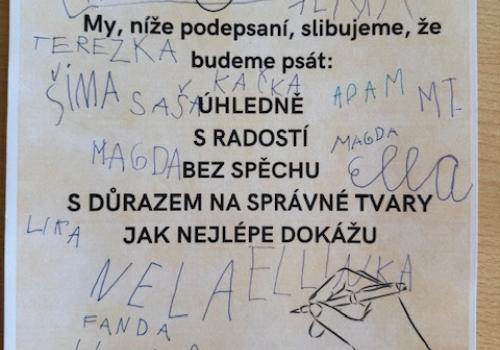 My, níže podepsaní, slibujeme, že
TEREZKA
budeme psát:
ŠÍMA SAŠA KAČKA ADAM
ÚHLEDNĚ
S RADOSTÍ
MAGDA
MAGDA BEZ SPĚCHU ella
S DŮRAZEM NA SPRÁVNÉ TVARY
JAK NEJLÉPE DOKÁŽU
NELA ELLINKA
FANDA